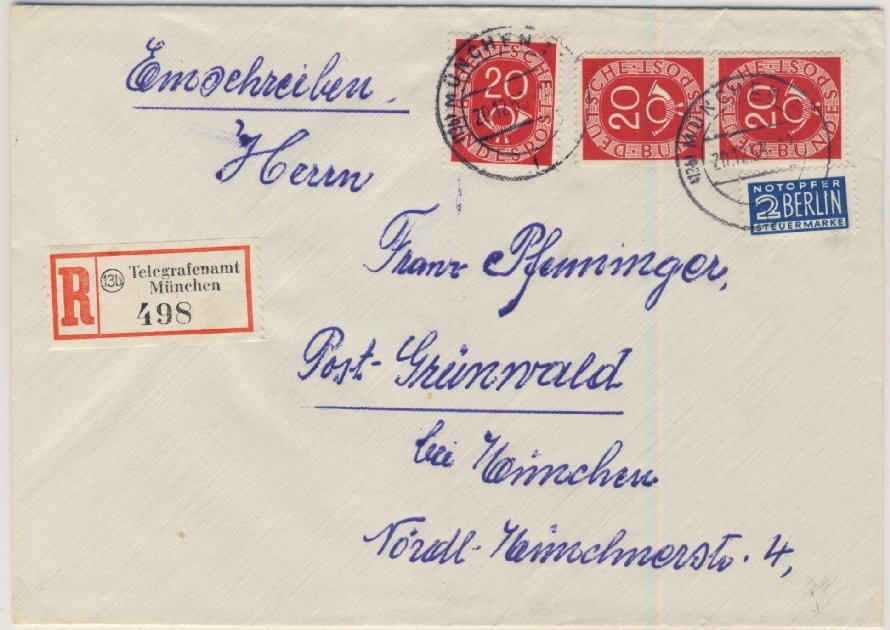 Einschreiben
Herrn
Franz Pfenninger,
Post-Grünwald
bei München
Nördl-Münchnerstr. 4,
R
13b Telegrafenamt
München
498
20
DEUTSCHE BUNDESPOST
20
DEUTSCHE BUNDESPOST
20
DEUTSCHE BUNDESPOST
MÜNCHEN
MÜNCHEN
NOTOPFER
2 BERLIN
STEUERMARKE